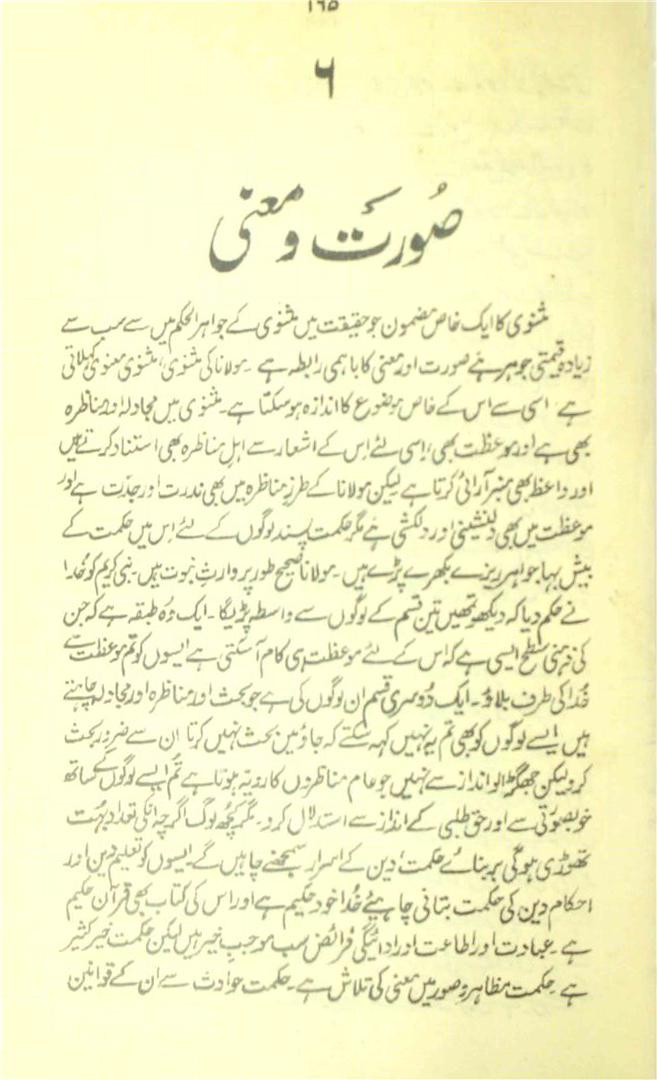 ۱۶۵
۶
صُورت و معنی
مثنوی کا ایک خاص مضمون جو حقیقت میں مثنوی کے جواہر الحکم میں سے سب سے
زیادہ قیمتی جوہر ہے صورت اور معنی کا باہمی رابطہ ہے ۔ مولانا کی مثنوی، مثنوی معنوی کہلاتی
ہے اسی سے اس کے خاص موضوع کا اندازہ ہو سکتا ہے۔ مثنوی میں مجادلہ اور مناظرہ
بھی ہے اور موعظت بھی، اِسی لئے اِس کے اشعار سے اہلِ مناظرہ بھی استناد کرتے ہیں
اور واعظ بھی منبر آرائی کرتا ہے لیکن مولانا کے طرزِ مناظرہ میں بھی ندرت اور جدّت ہے اور
موعظت میں بھی دلنشینی اور دلکشی ہے مگر حکمت پسند لوگوں کے لئے اِس میں حکمت کے
بیش بہا جواہر ریزے بکھرے پڑے ہیں۔ مولانا صحیح طور پر وارثِ نبوت ہیں۔ نبی کریم کو خُدا
نے حکم دیا کہ دیکھو تمھیں تین قسم کے لوگوں سے واسطہ پڑیگا۔ ایک وُہ طبقہ ہے کہ جن
کی ذہنی سطح ایسی ہے کہ اس کے لئے موعظت ہی کام آ سکتی ہے ایسوں کو تم موعظت سے
خُدا کی طرف بلاؤ۔ ایک دُوسری قسم ان لوگوں کی ہے جو بحث اور مناظرہ اور مجادلہ چاہتے
ہیں ایسے لوگوں کو بھی تم یہ نہیں کہہ سکتے کہ جاؤ میں بحث نہیں کرتا ان سے ضرور بحث
کرو لیکن جھگڑالو انداز سے نہیں جو عام مناظروں کا رویہ ہوتا ہے تُم ایسے لوگوں کے ساتھ
خوبصورتی سے اور حق طلبی کے انداز سے استدلال کرو۔ مگر کچھ لوگ اگرچہ انکی تعداد بہُت
تھوڑی ہوگی بربنائے حکمت، دین کے اسرار سمجھنے چاہیں گے۔ ایسوں کو تعلیم دین اور
احکام دین کی حکمت بتانی چاہیئے خُدا خود حکیم ہے اور اس کی کتاب بھی قرآن حکیم
ہے۔ عبادت اور اطاعت اور ادائیگی فرائض سب موجبِ خیر ہیں لیکن حکمت خیرِ کثیر
ہے۔ حکمت مظاہر و صور میں معنی کی تلاش ہے۔ حکمت حوادث سے ان کے قوانین